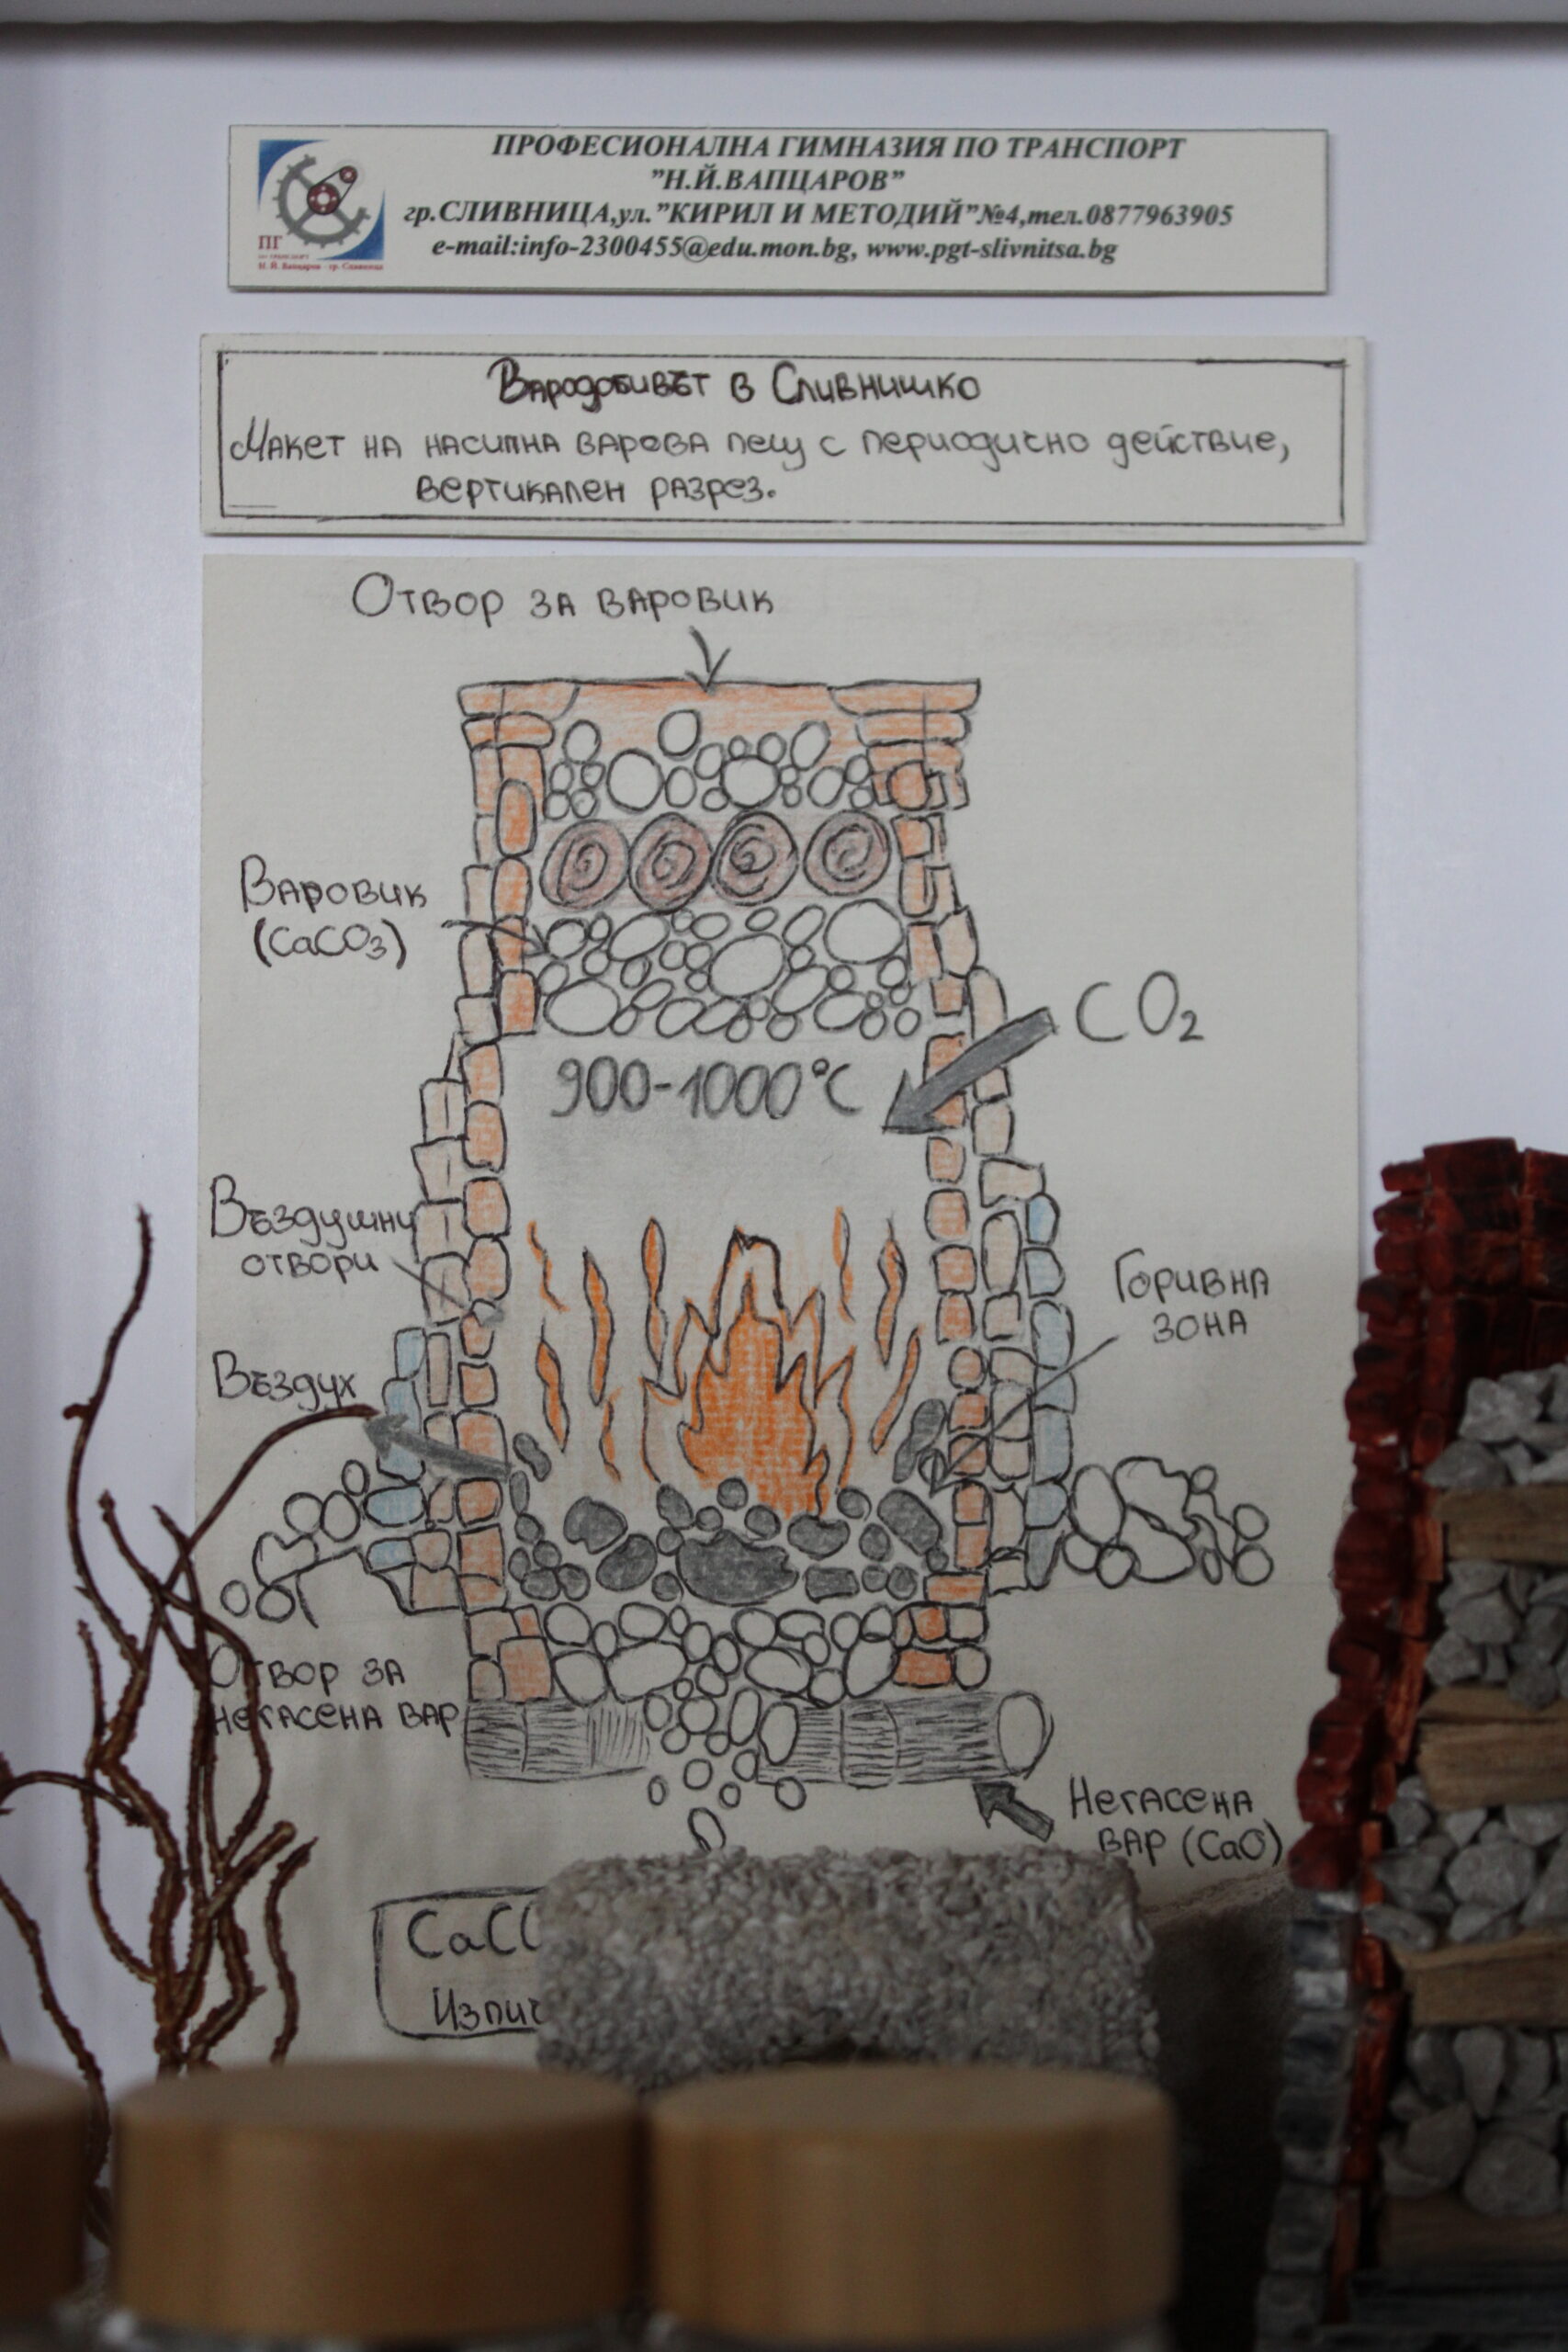 ПРОФЕСИОНАЛНА ГИМНАЗИЯ ПО ТРАНСПОРТ
"Н.Й.ВАПЦАРОВ"
гр.СЛИВНИЦА,ул."КИРИЛ И МЕТОДИЙ"№4,тел.0877963905
e-mail:info-2300455@edu.mon.bg, www.pgt-slivnitsa.bg
ПГ
Н. Й. Вапцаров - гр. Сливница
Вародобивът в Сливнишко
Макет на насипна варова пещ с периодично действие,
вертикален разрез.
Отвор за варовик
Варовик
(CaCO₃)
CO₂
900-1000°C
Въздушни
отвори
Горивна
зона
Въздух
Отвор за
негасена вар
Негасена
вар (CaO)